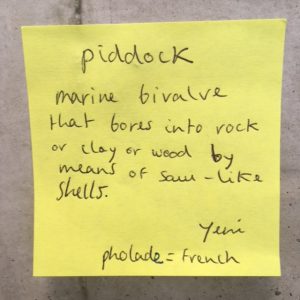 piddock
marine bivalve
that bores into rock
or clay or wood by
means of saw-like
shells.
Yeni
pholade = French